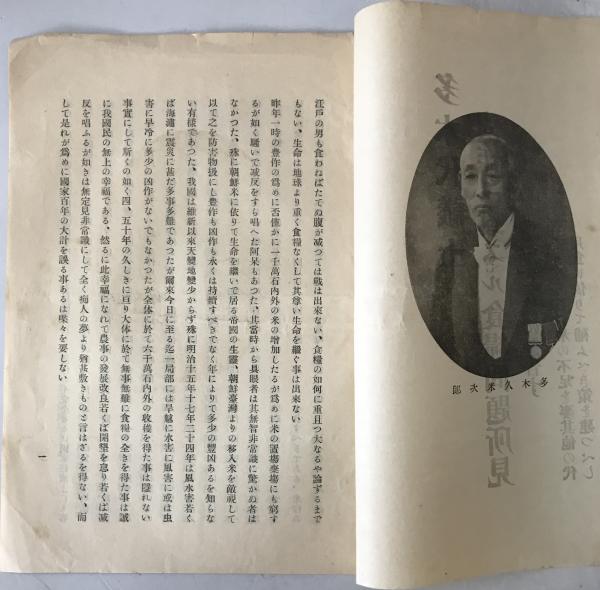 多木久米次郎
江戸の男も食わねばたてぬ腹が減つては戦は出來ない、食糧の如何に重且つ大なるや論ずるまで
もない、生命は地球より重く食糧なくして其尊い生命を繼ぐ事は出來ない
昨年一時の豊作の爲めに否僅かに一千萬石內外の米の增加したるが爲めに米の置場棄場にも窮す
るが如く騒いで減反をすら唱へた阿呆もあつた、其當時から具眼者は其無智非常識に驚かぬ者は
なかつた、殊に朝鮮米に依りて生命を繼いで居る帝國の生靈、朝鮮臺灣よりの移入米を敵視して
以て之を防害物扱にし豊作も凶作も永くは持續すべきでなく年によりて多少の豊凶あるを知らな
い有樣であつた、我國は維新以來天變地變少からず殊に明治十五年十七年二十四年は風水害若く
ば海嘯に震災に甚だ多事多難であつたが爾來今日に至る迄一局部には旱魃に水害に風害に或は虫
害に旱冷に多少の凶作がないでもなかつたが全体に於て六千萬石內外の收穫を得た事は隱れない
事實にして斯くの如く四、五十年の久しきに亘り大体に於て無事無難に食糧の全きを得た事は誠
に我國民の無上の幸福である、然るに此幸福になれて農事の發展改良若くば開墾を怠り若くば減
反を唱ふるが如きは無定見非常識にして全く痴人の夢より尙甚敷きものと言はざるを得ない、而
して是れが爲めに國家百年の大計を誤る事あるは喋々を要しない
一